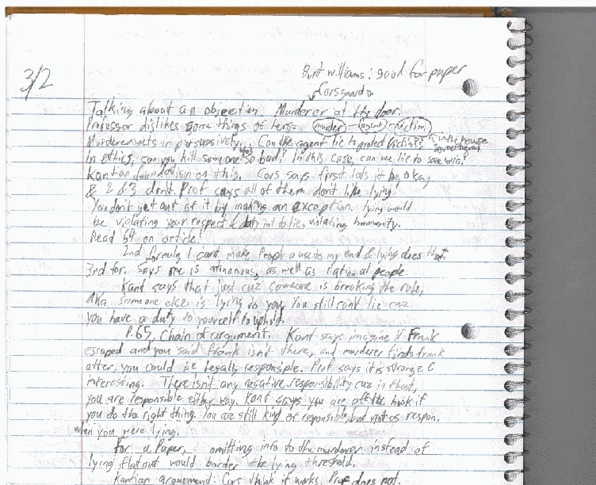 3/2
Burt williams: good for paper
Corsguard
Talking about an objection. Murderer at the door.
Professor dislikes some things of hers. murder - agent - victim
in the house
Murderer gets in persuasively. Can the agent lie to protect victim?
In ethics, can you kill someone so bad? In this case, can we lie to save vic?
Kantian foundation on this. Cors says first lets it be okay,
& 2 & 3 dont. Prof says all of them don't like lying!
You don't get out of it by making an exception. lying would
be violating your respect & duty not to lie, violating humanity.
Read 64 on article!
2nd formula, I cant make people a use to my end & lying does that.
3rd for. says one is autonomous, as well as rational people.
Kant says that just cuz someone is breaking the rule,
AKA someone else is lying to you, you still can't lie cuz
you have a duty to yourself to uphold.
P. 65, Chain of argument. Kant says imagine if Frank
escaped and you said frank isnt there, and murderer finds frank
after, you could be legally responsible. Prof says it is strange &
interesting. There isnt any negative responsibility cuz in that,
you are responsible either way. Kant says you are off the hook if
you do the right thing. You are still kind of responsible, but not as respon.
when you were lying.
For a Paper, omitting info to the murderer instead of
lying flat out would border the lying threshold.
Kantian arguement: Cors think it works. Prof does not.